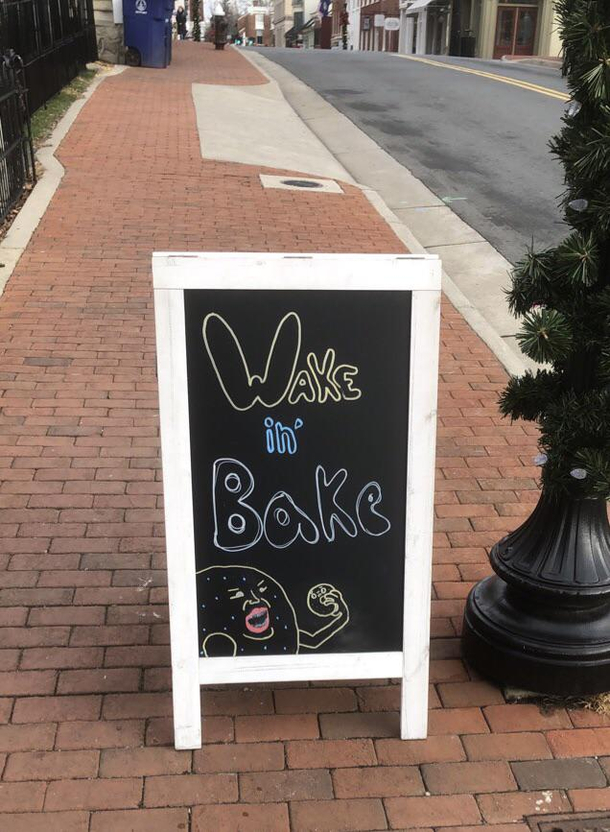 Wake
in'
Bake